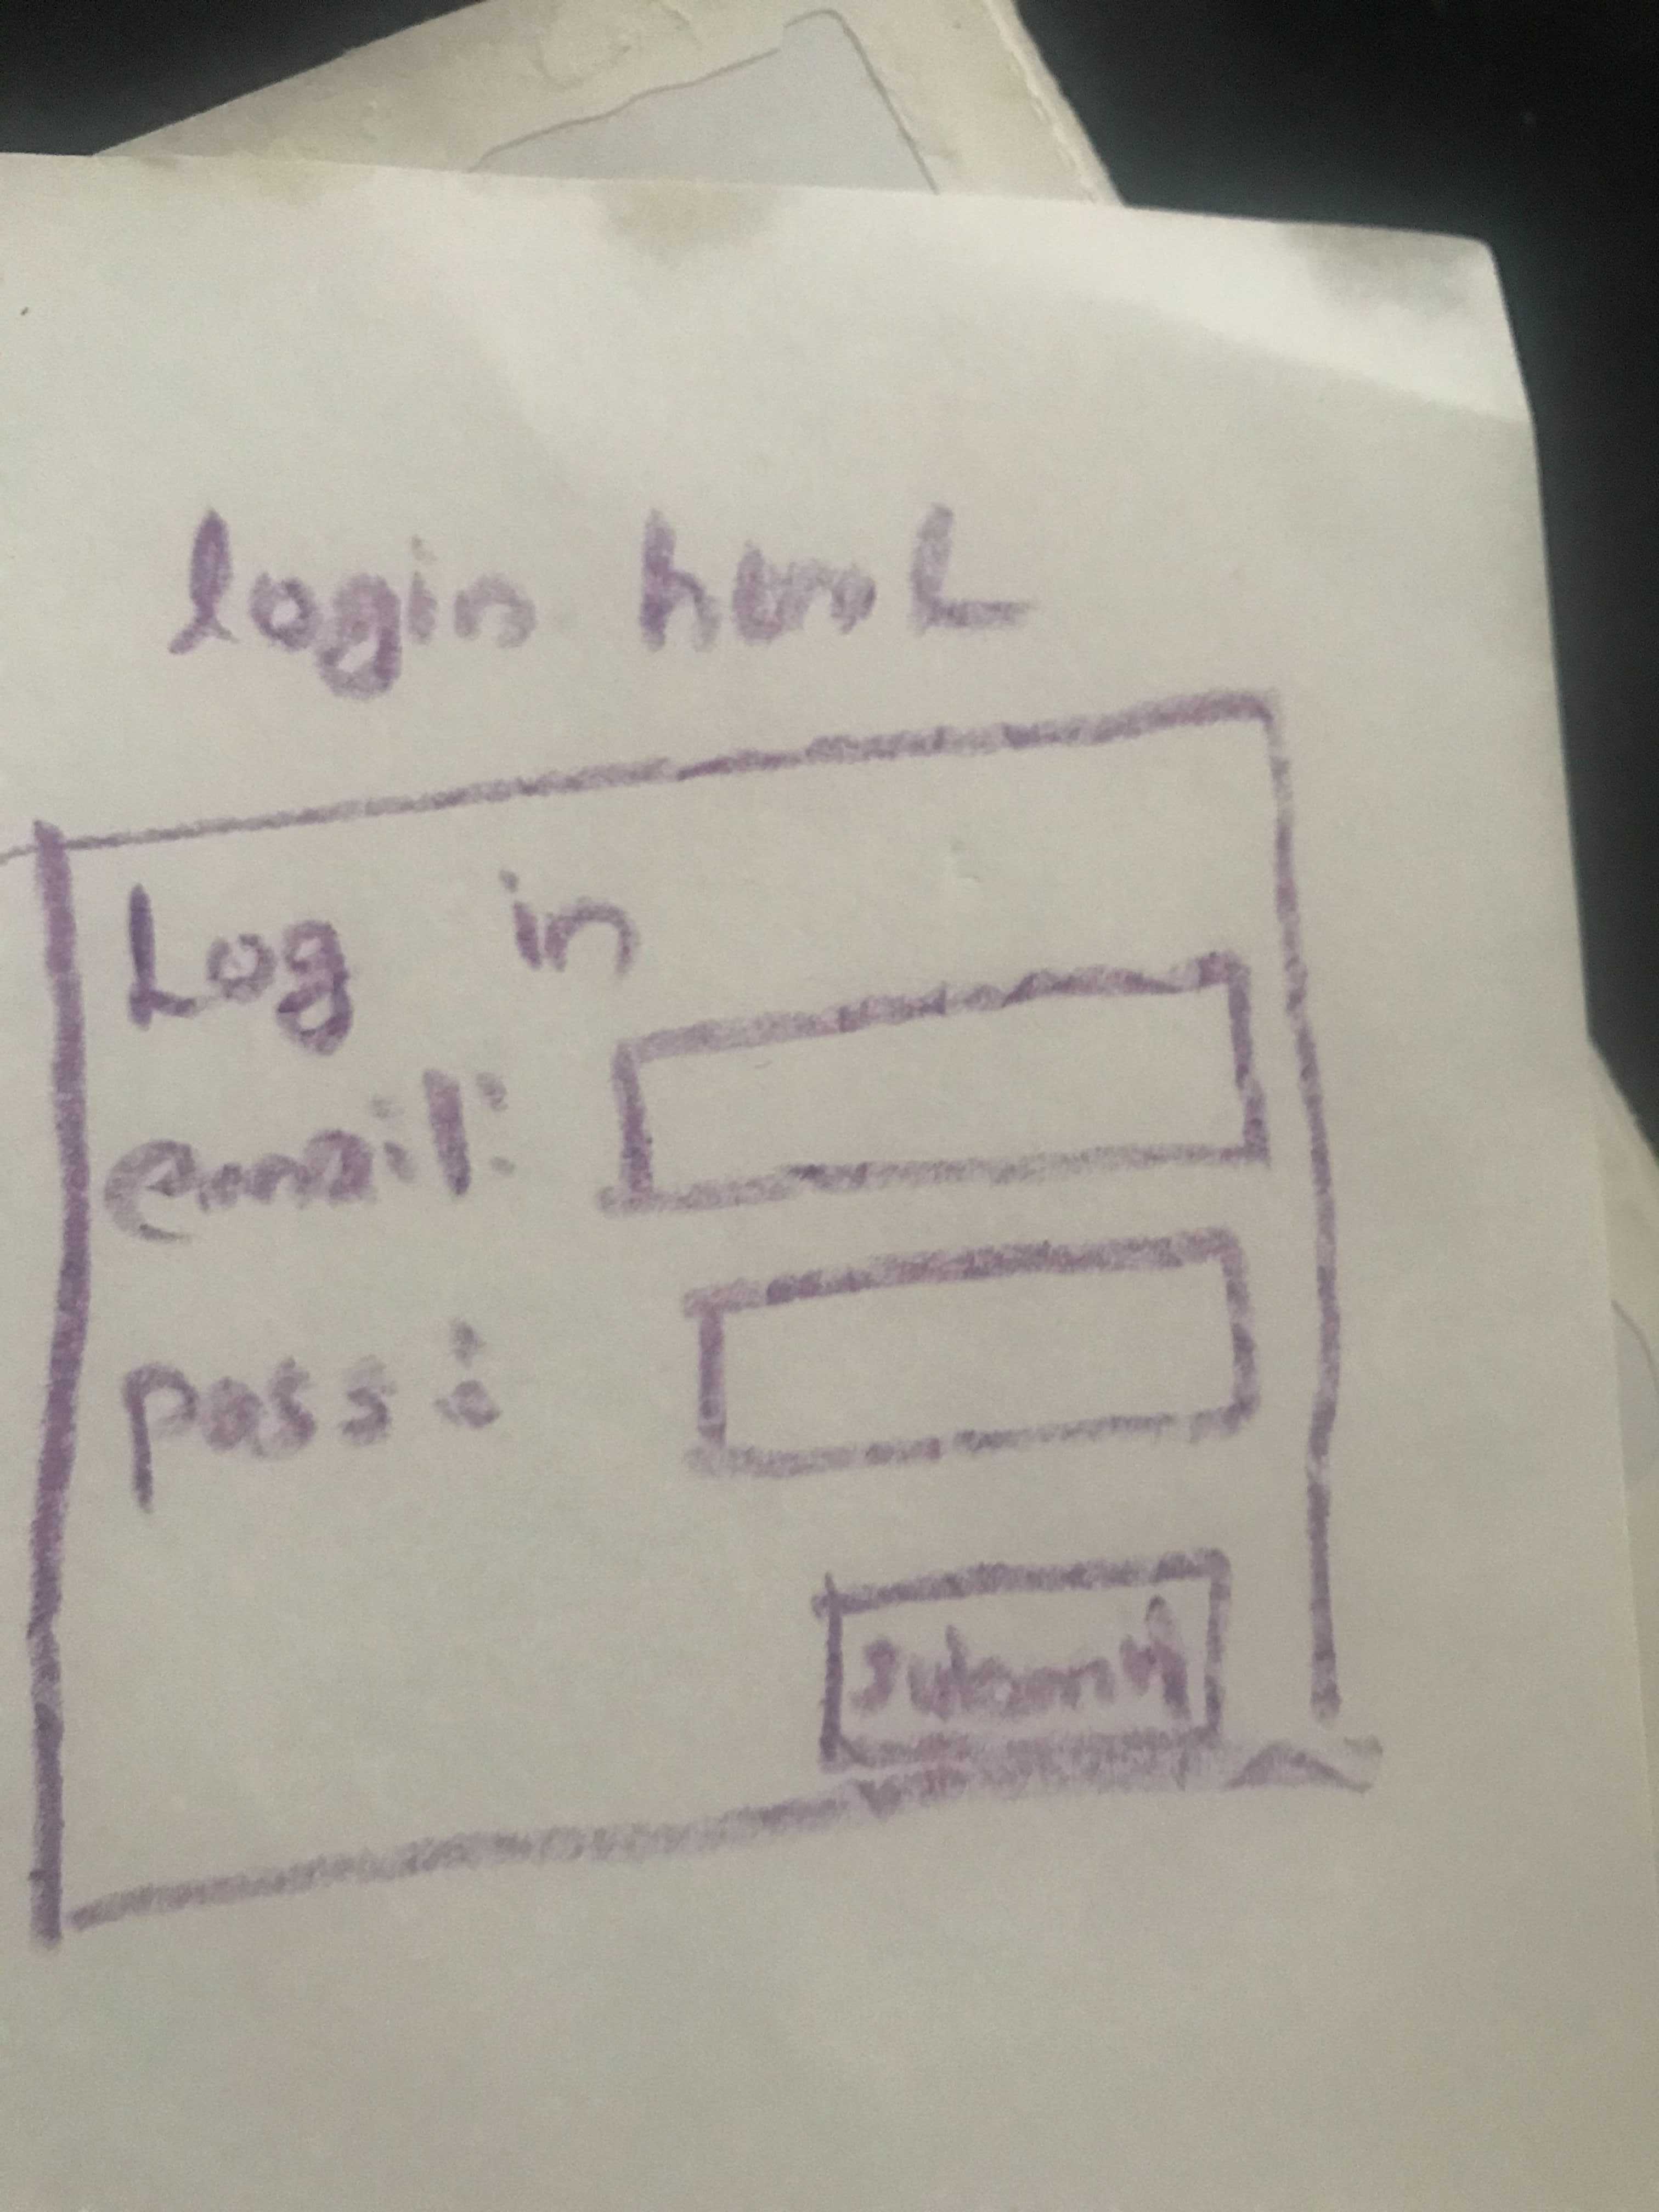 login html
Log in
email:
pass:
submit